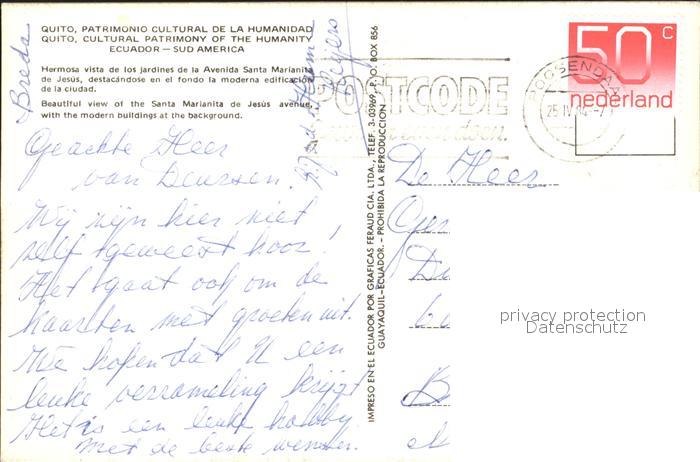 QUITO, PATRIMONIO CULTURAL DE LA HUMANIDAD
QUITO, CULTURAL PATRIMONY OF THE HUMANITY
ECUADOR — SUD AMERICA
Hermosa vista de los jardines de la Avenida Santa Marianita
de Jesús, destacándose en el fondo la moderna edificación
de la ciudad.
Beautiful view of the Santa Marianita de Jesús avenue,
with the modern buildings at the background.
Breda
Geachte Heer
van Deursen.
Wij zijn hier niet
zelf geweest hoor!
Het gaat ook om de
kaarten met groeten uit.
We hopen dat U een
leuke verzameling krijgt
Het is een leuke hobby.
Met de beste wensen.
IMPRESO EN EL ECUADOR POR GRAFICAS FERAUD CIA. LTDA., TELEF. 3-03969, P.O. BOX 856
GUAYAQUIL-ECUADOR. - PROHIBIDA LA REPRODUCCION
POSTCODE
ROOSENDAAL
50 C
nederland
De Heer
privacy protection
Datenschutz